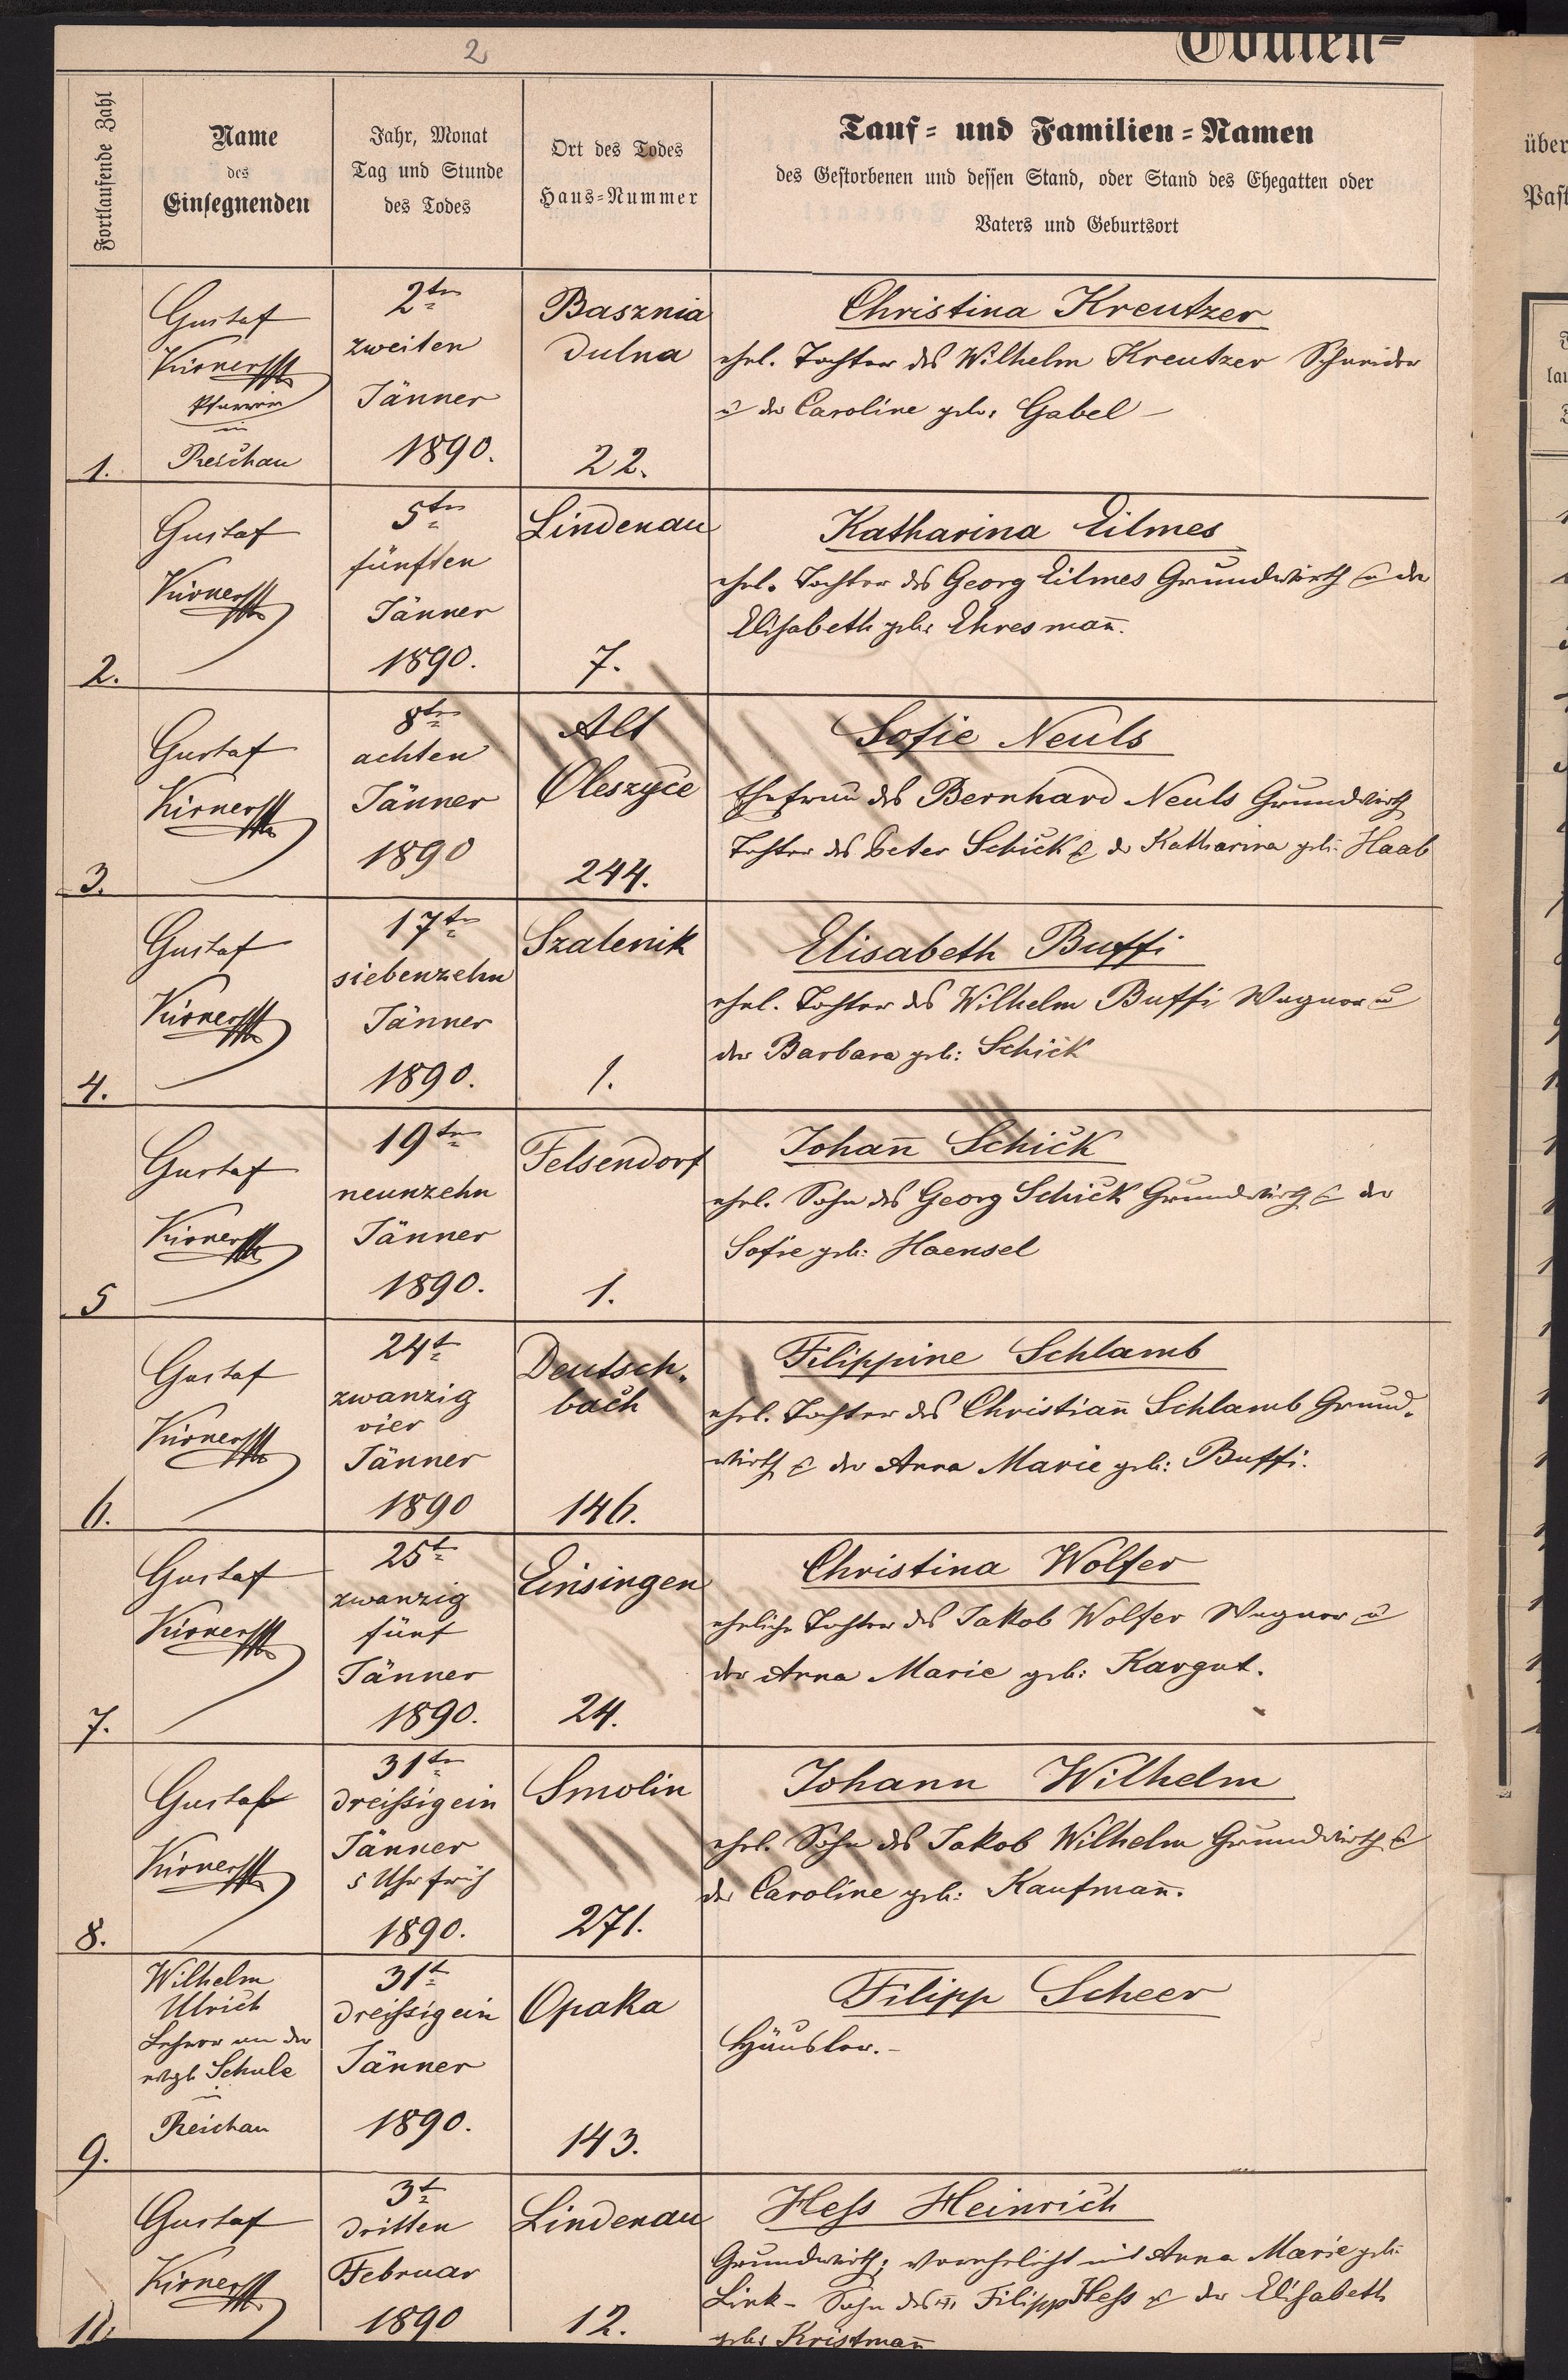 2
Todten-
Fortlaufende Zahl
Name
des
Einsegnenden
Jahr, Monat
Tag und Stunde
des Todes
Ort des Todes
Haus-Nummer
Tauf- und Familien-Namen
des Gestorbenen und dessen Stand, oder Stand des Ehegatten oder
Vaters und Geburtsort
1.
Gustaf
Kirner
Pfarrer
in
Reichau
2ten
zweiten
Jänner
1890.
Basznia
dulna
22.
Christina Kreutzer
ehel. Tochter des Wilhelm Kreutzer Schneider
u der Caroline geb. Gabel –
2.
Gustaf
Kirner
5ten
fünften
Jänner
1890.
Lindenau
7.
Katharina Eilmes
ehel. Tochter des Georg Eilmes Grundwirth u der
Elisabeth geb. Ehresmañ.
3.
Gustaf
Kirner
8ten
achten
Jänner
1890
Alt
Oleszyce
244.
Sofie Neuls
Ehefrau des Bernhard Neuls Grundwirth
Tochter des Peter Schick & der Katharina geb: Haab
4.
Gustaf
Kirner
17ten
siebenzehn
Jänner
1890.
Szalenik
1.
Elisabeth Buffi
ehel. Tochter des Wilhelm Buffi Wagner u
der Barbara geb: Schick
5
Gustaf
Kirner
19ten
neunzehn
Jänner
1890.
Felsendorf
1.
Johañ Schick
ehel. Sohn des Georg Schick Grundwirth & der
Sofie geb: Haensel
6.
Gustaf
Kirner
24t
zwanzig
vier
Jänner
1890
Deutsch-
bach
146.
Filippine Schlamb
ehel. Tochter des Christiañ Schlamb Grund-
wirth & der Anna Marie geb: Buffi.
7.
Gustaf
Kirner
25t
zwanzig
fünf
Jänner
1890.
Einsingen
24.
Christina Wolfer
eheliche Tochter des Jakob Wolfer Wagner u
der Anna Marie geb: Kargut.
8.
Gustaf
Kirner
31ten
dreißigein
Jänner
5 Uhr früh
1890.
Smolin
271.
Johann Wilhelm
ehel. Sohn des Jakob Wilhelm Grundwirth &
der Caroline geb: Kaufmañ.
9.
Wilhelm
Ulrich
Lehrer an der
evgl. Schule
in
Reichau
31t
dreißigein
Jänner
1890.
Opaka
143.
Filipp Scheer
Häusler.–
Gustaf
Kirner
3t
dritten
Februar
1890
Lindenau
12.
Heß Heinrich
Grundwirth; verehelicht mit Anna Marie geb:
Link – Sohn des Filipp Heß & der Elisabeth
geb: Kristmañ
über
Past
lau